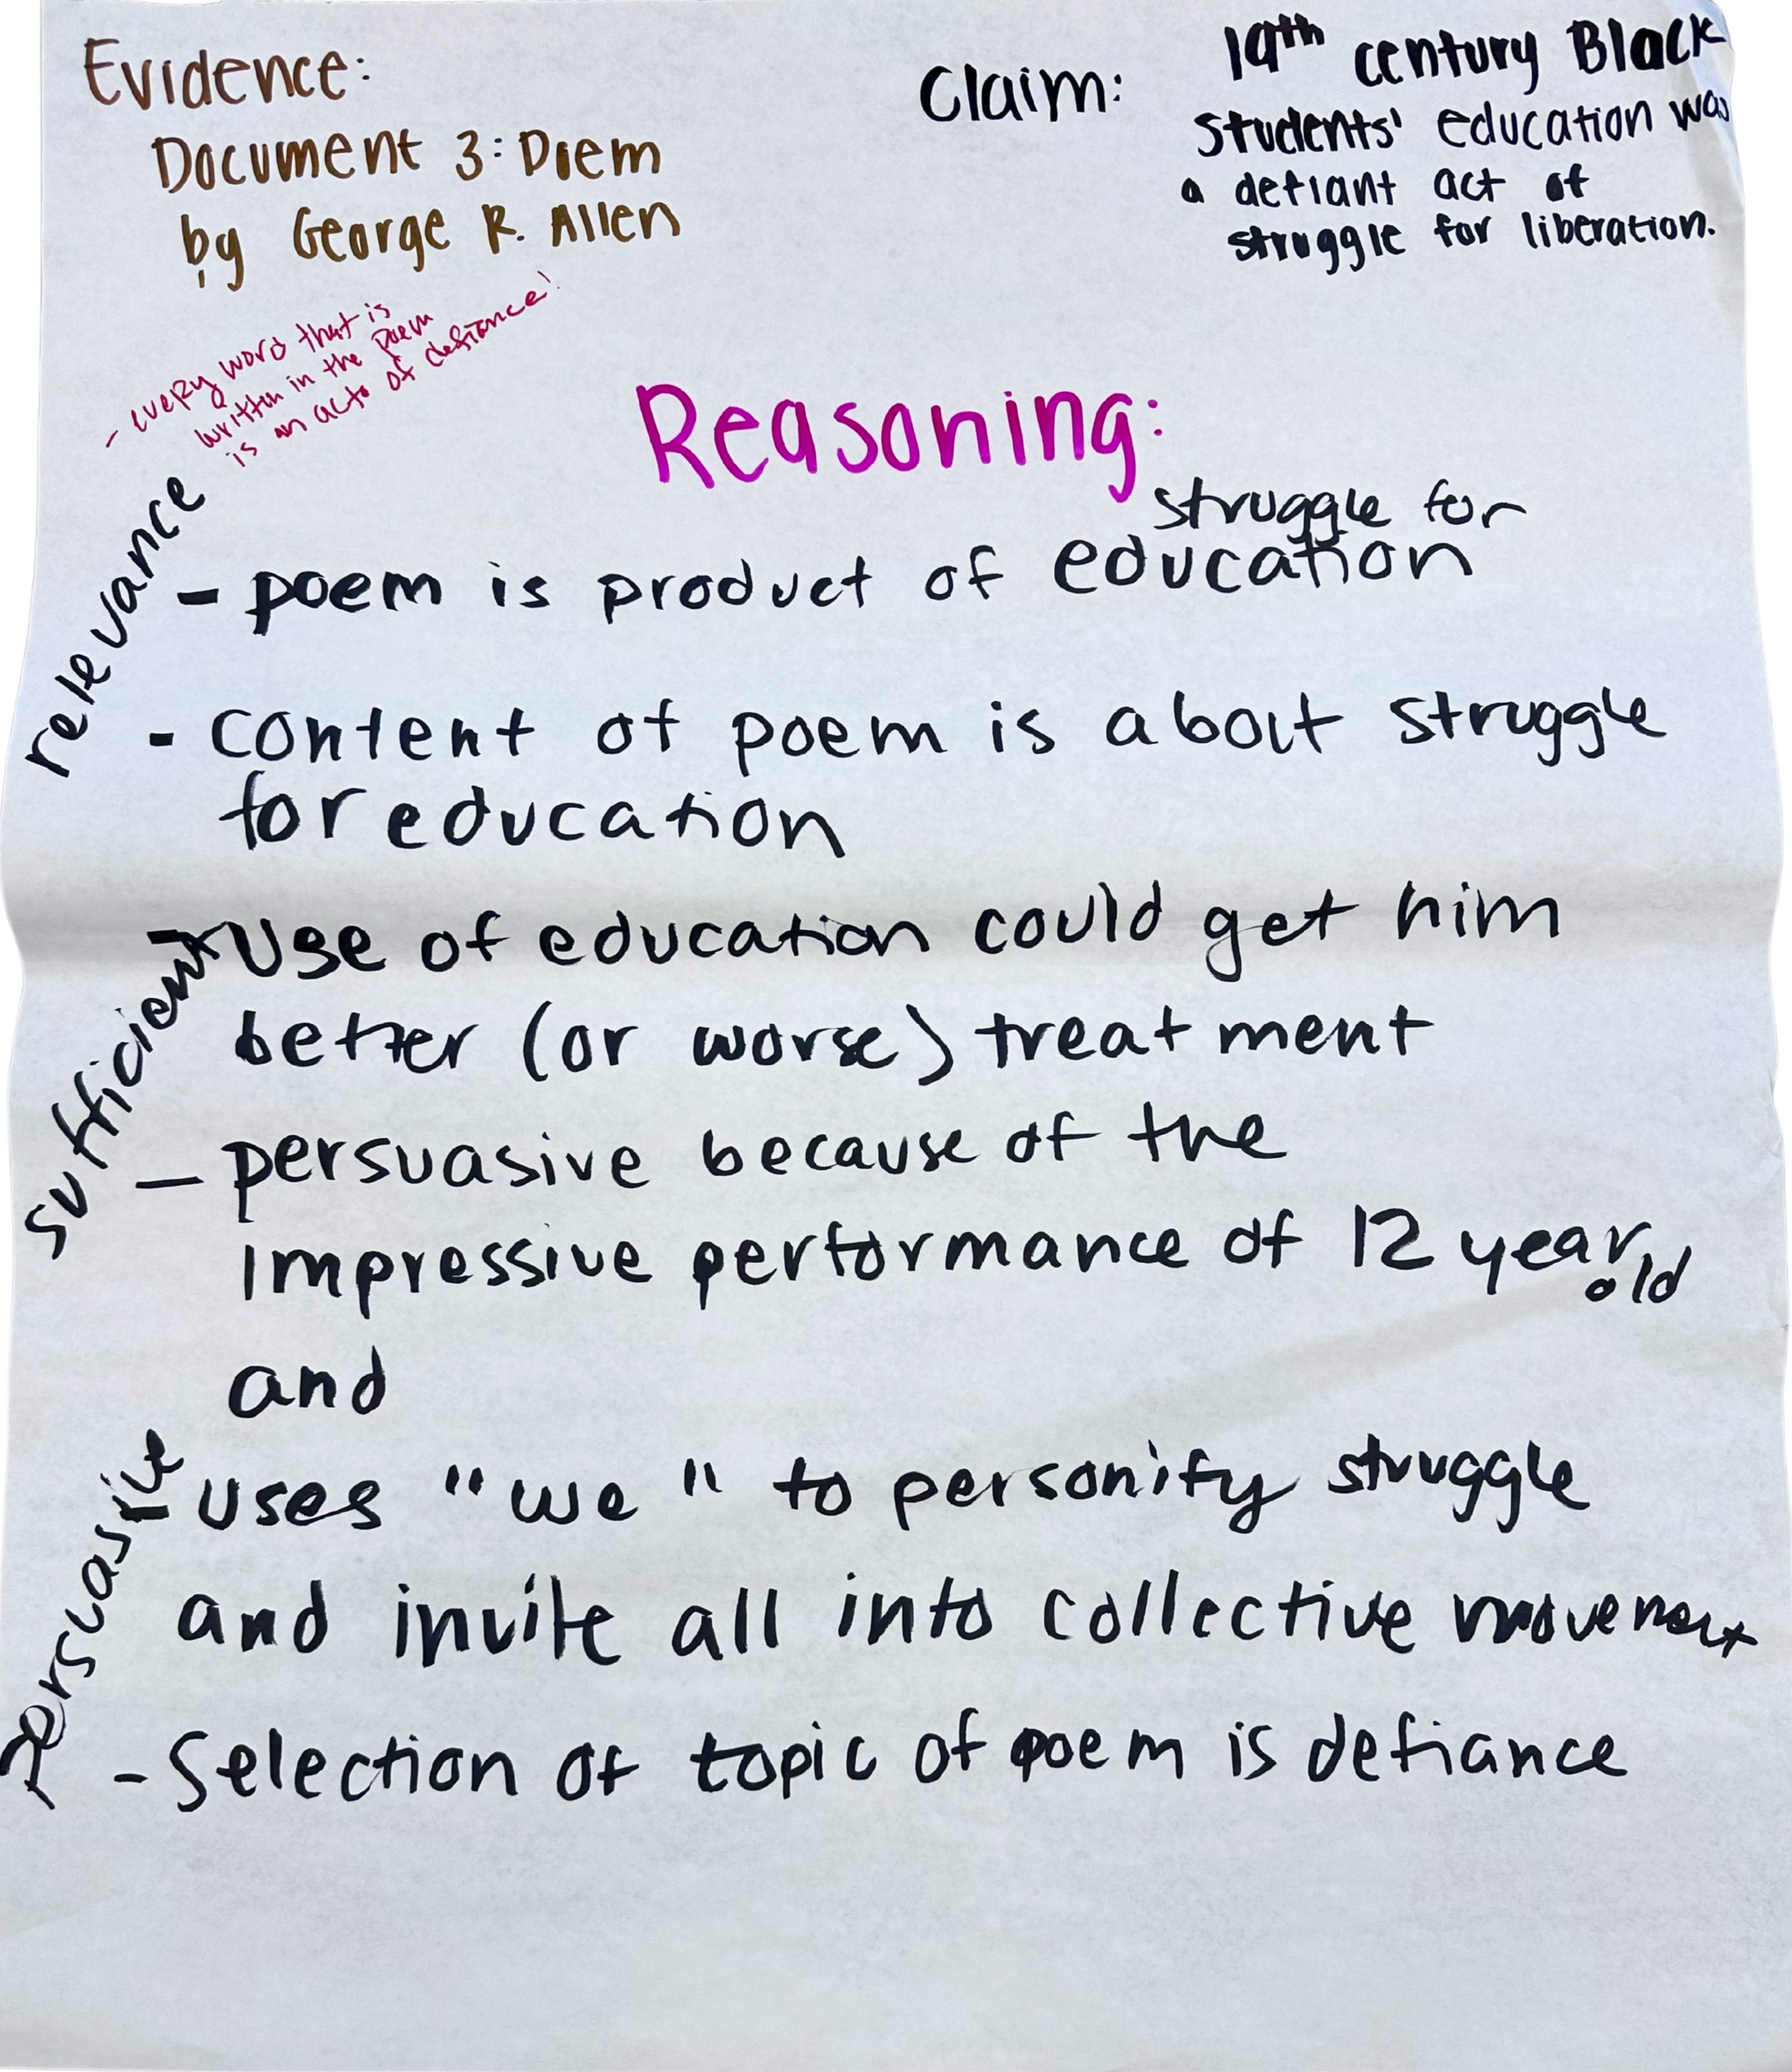 Evidence:
Document 3: Poem
by George R. Allen
- every word that is
written in the poem
is an acto of defiance!
Claim:
19th century Black
Students' education was
a defiant act of
struggle for liberation.
Reasoning:
relevance
struggle for
- poem is product of education
- content of poem is about struggle
for education
sufficient
- Use of education could get him
better (or worse) treatment
- persuasive because of the
impressive performance of 12 year
old
and
persuasive
uses "we" to personify struggle
and invite all into collective movement
- Selection of topic of poem is defiance